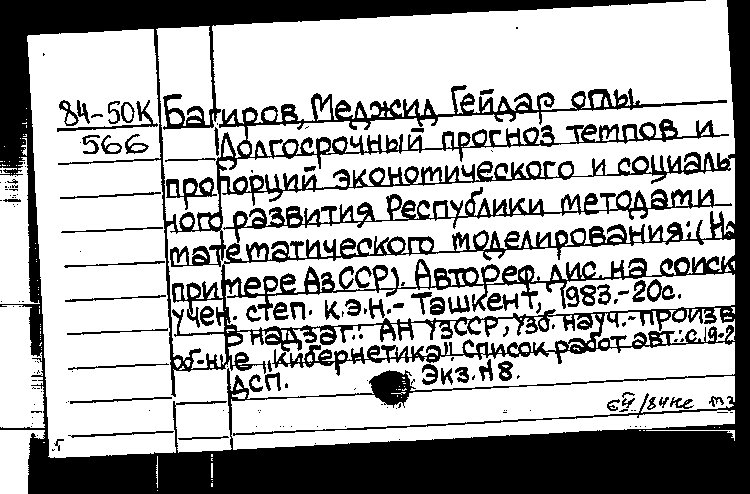 84-50К Багиров, Меджид Гейдар оглы.
566 Долгосрочный прогноз темпов и
пропорций экономического и социаль-
ного развития Республики методами
математического моделирования: (На
примере АзССР). Автореф. дис. на соиск
учен. степ. к.э.н.- Ташкент, 1983.-20с.
В надзаг.: АН УзССР, Узб. науч.-произв
об-ние „Кибернетика". Список работ авт.: с.19-2
ДСП. Экз.№8.